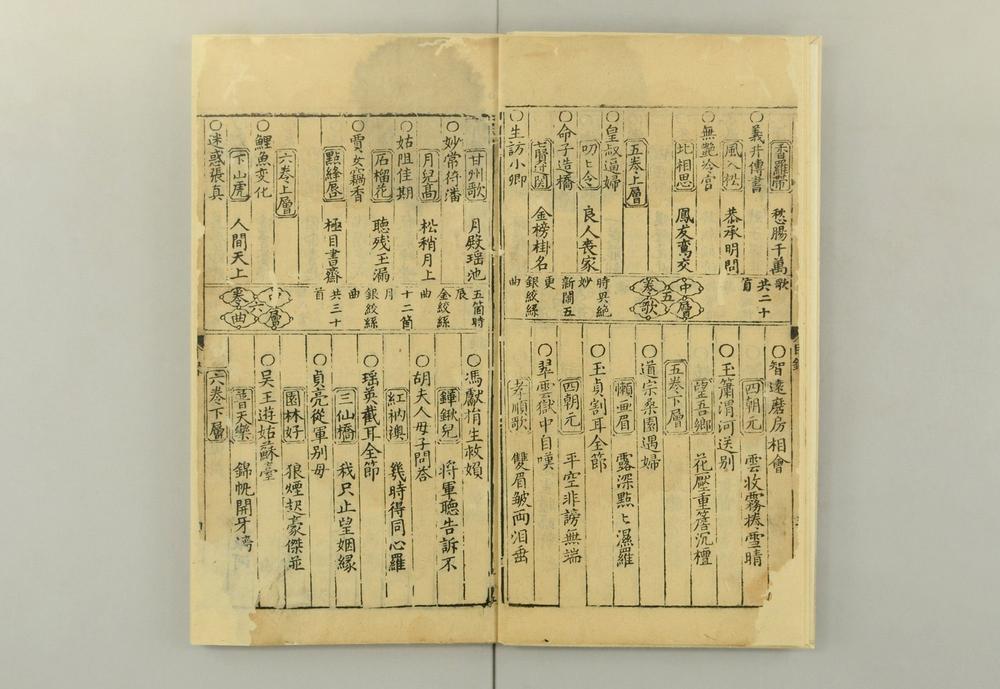 香羅帶 愁腸千萬
○義井傳書
風入松 恭承明問
○無艷冷宮
比相思 鳳友鸞交
五卷上層
○皇叔逼婦
叨叨令 良人喪家
○命子造橋
金榜桂名
○生訪小卿
甘州歌 月殿瑶池
○妙常待潘
月兒髙 松稍月上
○姑阻佳期
石榴花 聽残玉漏
○賈女竊香
點絳唇 極目書齋
六卷上層
○鯉魚変化
下山虎 人間天上
○迷惑張真
歌
共二十
首
中層
五
卷歌
時興絶
妙
新閙五
更
銀絞絲
曲
五箇時
辰
金絞絲
曲
十二箇
月
銀絞絲
曲
共三十
首
中層
六
卷曲
目錄
○智達磨房相會
四朝元 雲收霧捲雪晴
○玉簫渭河送别
望吾鄉 花壓重簷沉檀
五卷下層
○道宗桑園遇婦
懶画眉 露深點ヒ濕羅
○玉貞割耳全節
四朝元 平空非謗無端
○翠雲獄中自嘆
孝順歌 雙眉皺两泪垂
○馮獻捐生救嬪
鏵鍬兒 將軍聽告訴不
胡夫人母子問答
紅衲襖 幾時得同心羅
○瑶英截耳全節
三仙橋 我只止望姻縁
○貞亮從軍别母
園林好 狼煙起豪傑並
○吴王遊姑蘇臺
普天樂 錦帆開牙濤
六卷下層